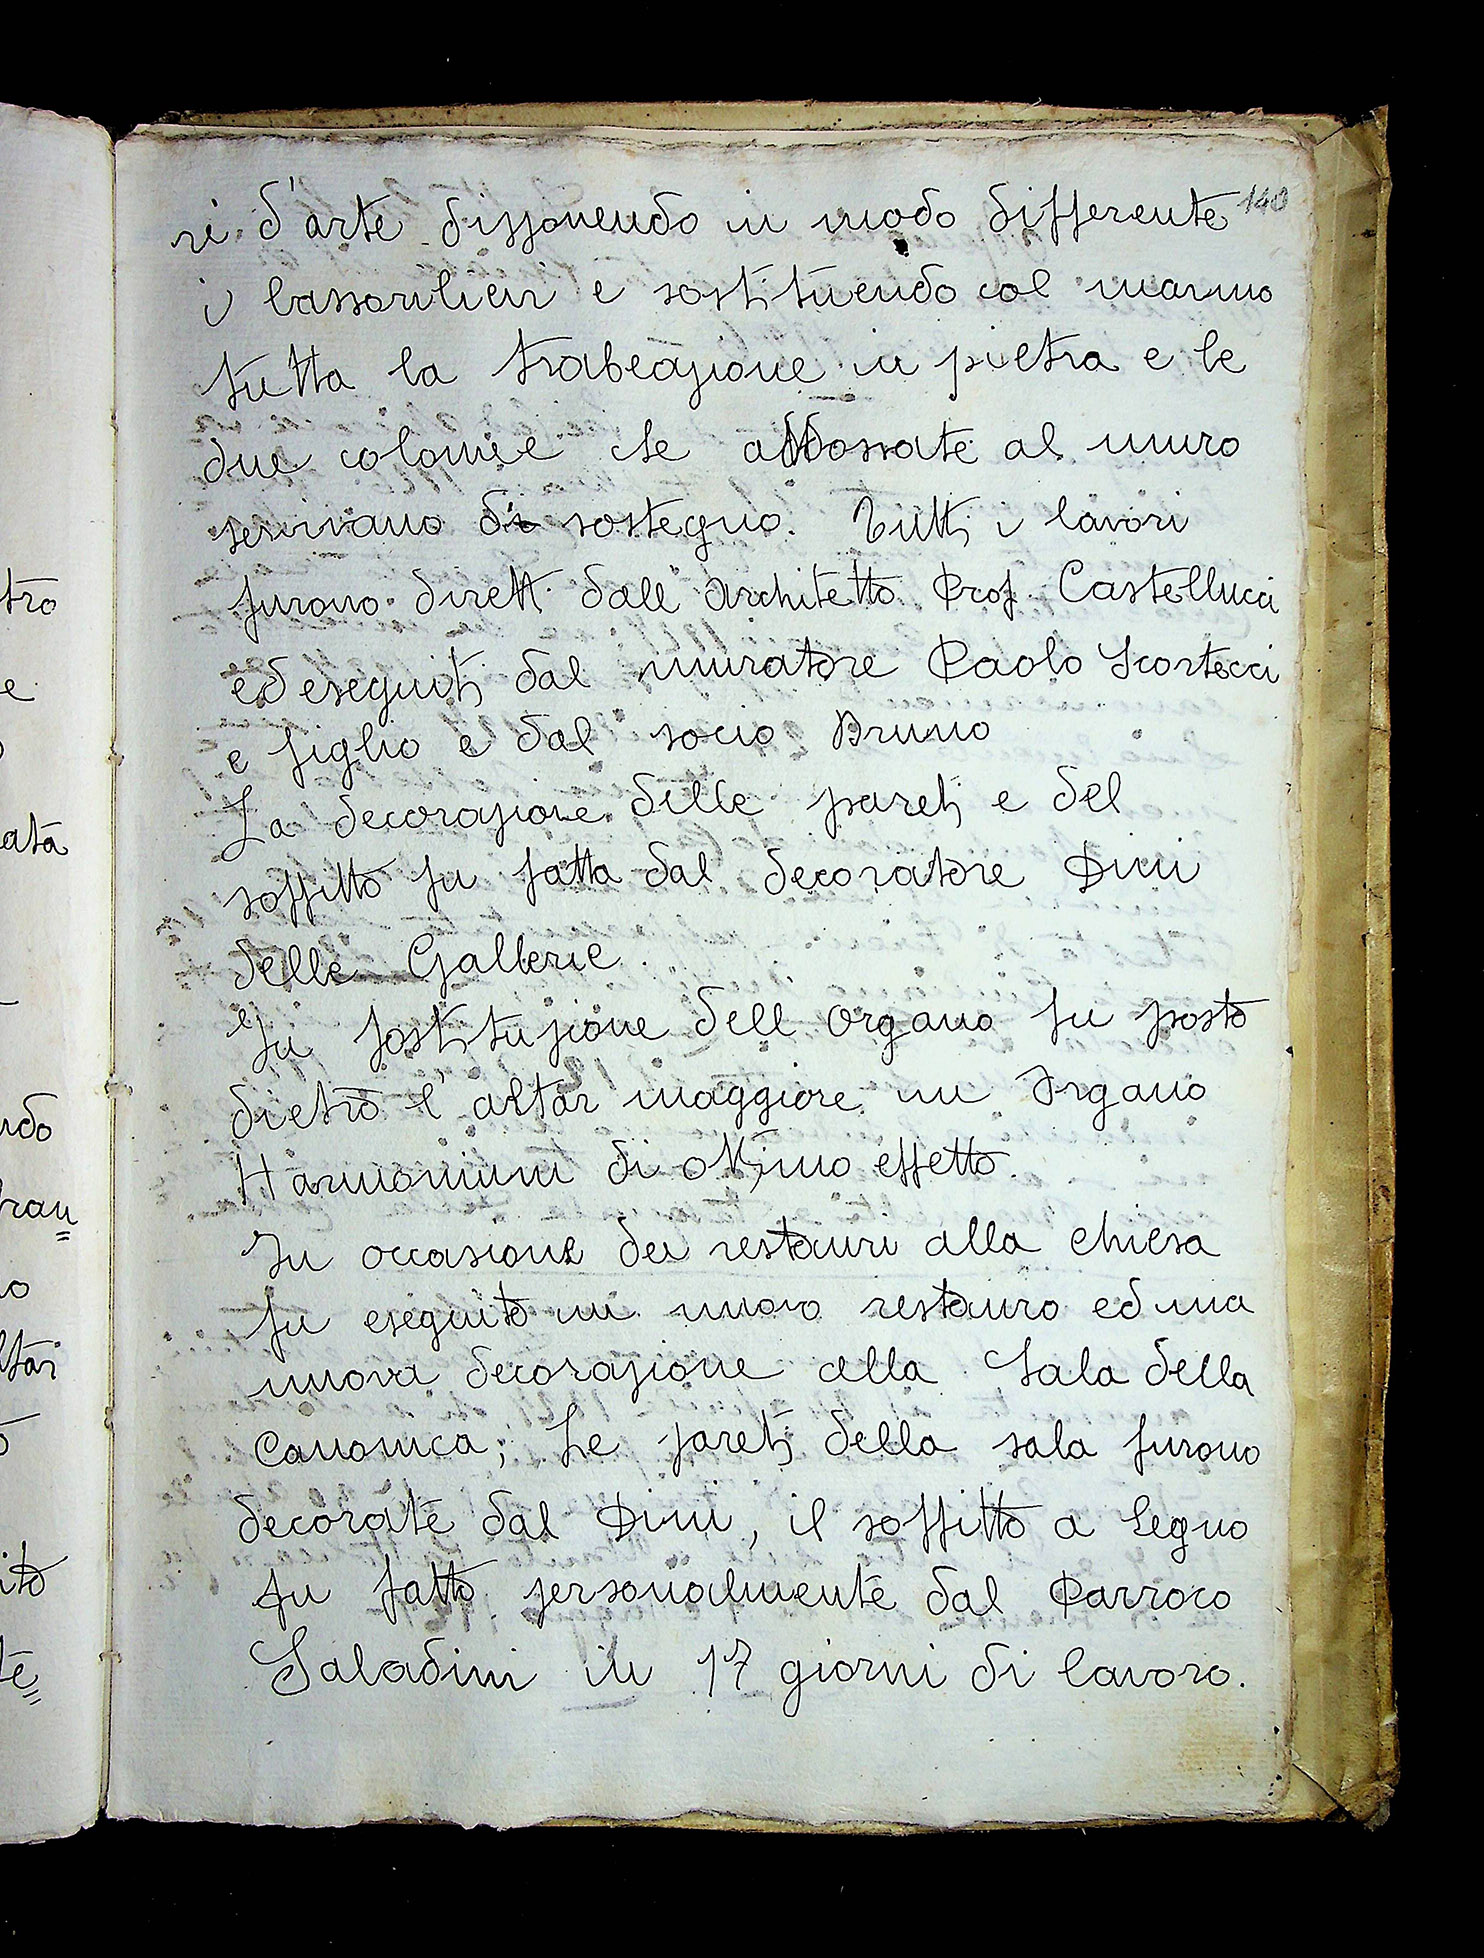 140
ri d'arte disponendo in modo differente
i bassorilievi e sostituendo col marmo
tutta la trabeazione in pietra e le
due colonne che addossate al muro
servivano di sostegno. Tutti i lavori
furono diretti dall'architetto Prof. Castellucci
ed eseguiti dal muratore Paolo Scortecci
e figlio e dal socio Bruno
La decorazione delle pareti e del
soffitto fu fatta dal decoratore Dini
delle Gallerie.
In sostituzione dell organo fu posto
dietro l'altar maggiore un Organo
Harmonium di ottimo effetto.
In occasione dei restauri alla chiesa
fu eseguito un nuovo restauro ed una
nuova decorazione alla Sala della
Canonica; Le pareti della sala furono
decorate dal Dini, il soffitto a legno
fu fatto personalmente dal Parroco
Saladini in 17 giorni di lavoro.
tro
e
ata
ndo
fran
no
ltari
o
ito
te